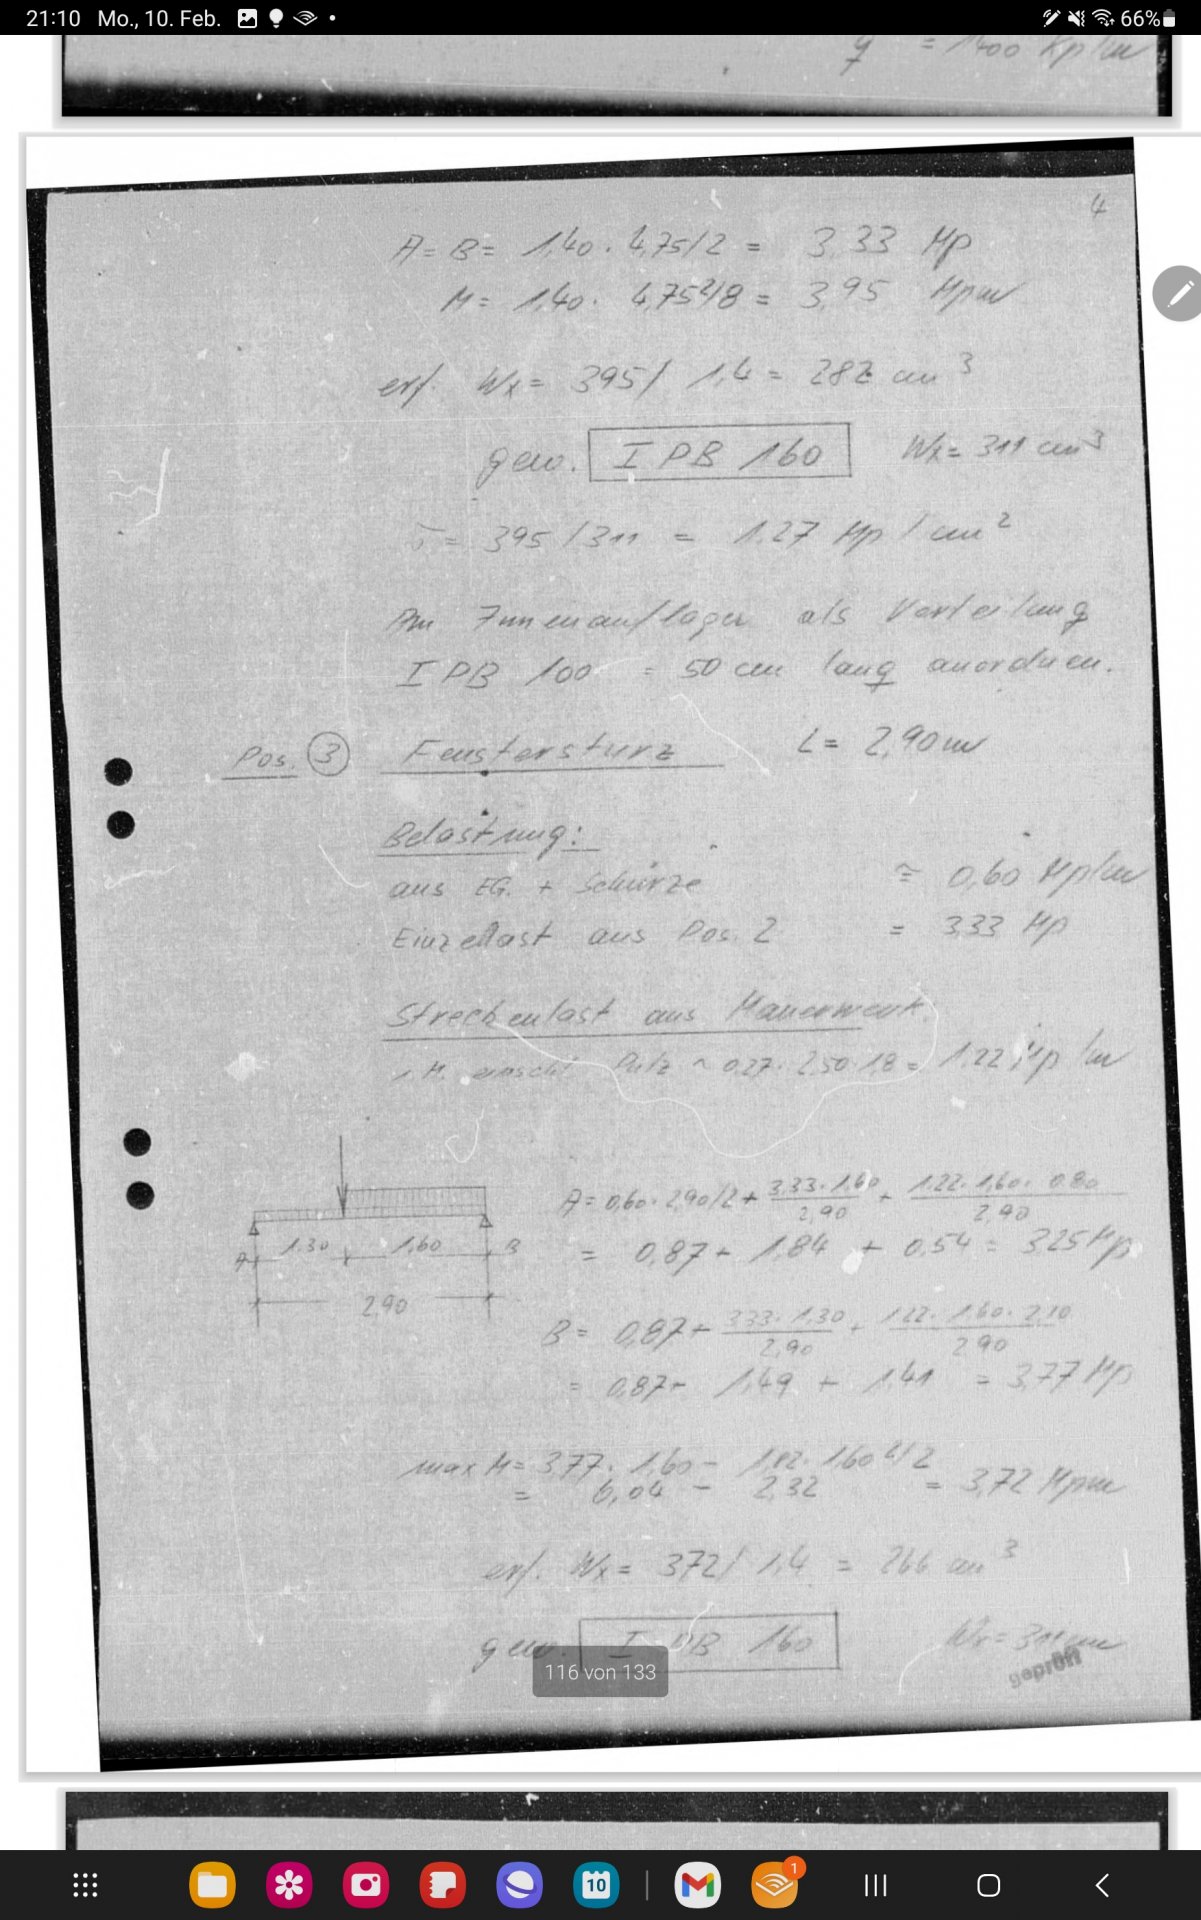 21:10 Mo., 10. Feb. 66%
= 1400 Kp/m
4
A = B = 1,40 · 4,75/2 = 3,33 Mp
M = 1,40 · 4,75²/8 = 3,95 Mpm
erf. Wx = 395 / 1,4 = 282 cm³
gew. I PB 160 Wx = 311 cm³
σ = 395 / 311 = 1.27 Mp / cm²
Am Innenauflager als Verteilung
I PB 100 = 50 cm lang anordnen.
Pos. 3 Fenstersturz L = 2,90 m
Belastung:
aus EG. + Schürze ≅ 0,60 Mp/m
Einzellast aus Pos. 2 = 3,33 Mp
Streckenlast aus Mauerwerk
Putz ~ 0,27 · 2,50 · 1,8 = 1,22 Mp/m
A = 0,60 · 2,90/2 + 3,33 · 1,60 / 2,90 + 1,22 · 1,60 · 0,80 / 2,90
= 0,87 + 1,84 + 0,54 = 3,25 Mp
A 1,30 1,60 B
2,90
B = 0,87 + 3,33 · 1,30 / 2,90 + 1,22 · 1,60 · 2,10 / 2,90
= 0,87 + 1,49 + 1,41 = 3,77 Mp
max M = 3,77 · 1,60 - 1,82 · 1,60²/2
= 6,04 - 2,32 = 3,72 Mpm
erf. Wx = 372 / 1,4 = 266 cm³
gew. I PB 160 Wx = 311 cm
geprüft
116 von 133
10
1